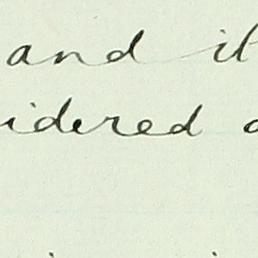 and it
idered